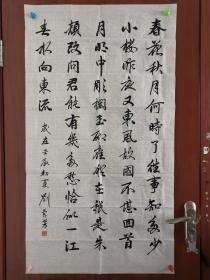 春花秋月何時了往事知多少
小樓昨夜又東風故國不堪回首
月明中彫欄玉砌應猶在祇是朱
顏改問君能有幾多愁恰似一江
春水向東流
歲在壬辰初夏劉